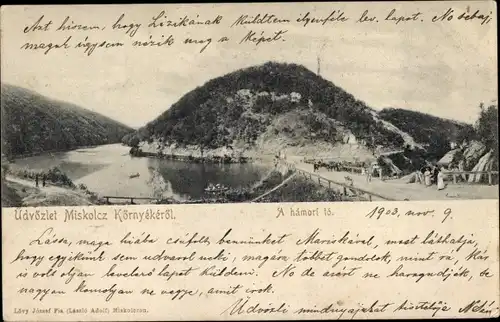 Azt hiszem, hogy Lizikának küldtem ilyenféle lev. lapot. No sebaj,
magok úgysem nézik meg a képet.
Üdvözlet Miskolcz Környékéről.
A hámori tó.
1903. nov. 9.
Lássa, maga hiába csúfolt bennünket Mariskával, most láthatja,
hogy egyikünk sem udvarol neki, magára többet gondolok, mint rá, Már
is volt olyan levelező lapot küldeni. No de azért ne haragudjék, be
nagyon komolyan ne vegye, amit irok.
Üdvözli mindnyájukat tisztelője
Lövy József Fia (László Adolf) Miskolczon.